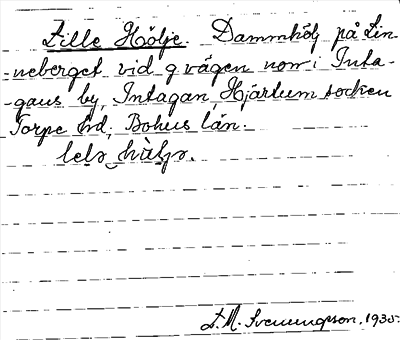 Lille Hölje. Dammhölj på Lin-
neberget vid g vägen norr i Inta-
gans by, Intagan, Hjärtum socken
Torpe hd, Bohus län.
lelə hɵ̀ljə.
L.M. Svenungsson. 1935.